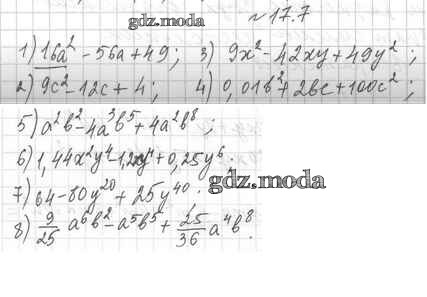 gdz.moda
№ 17.7
1) 16a² - 56a + 49 ; 3) 9x² - 42xy + 49y² ;
2) 9c² - 12c + 4 ; 4) 0,01b² + 2bc + 100c² ;
5) a²b² - 4a³b⁵ + 4a²b⁸ ;
6) 1,44x²y⁴ - 1,2xy⁴ + 0,25y⁶ ;
gdz.moda
7) 64 - 80y²⁰ + 25y⁴⁰ .
8) 9/25 a⁶b² - a⁵b⁵ + 25/36 a⁴b⁸ .